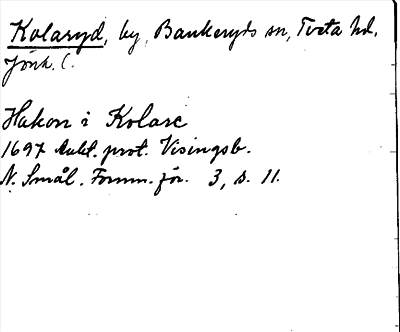 Kolaryd, by, Bankeryds sn, Tveta hd,
Jönk. l.
Hakon i Kolare
1697 Aukt. prot. Visingsb.
N. Smål. Fornm. för. 3, s. 11.